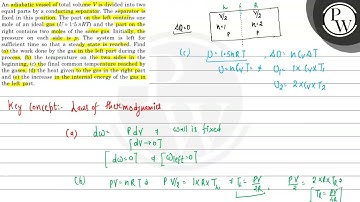 An adiabatic vessel of total volume V is divided into two
equal parts by a conducting separator. The separator is
fixed in this position. The part on the left contains one
mole of an ideal gas (U = 1·5 nRT) and the part on the
right contains two moles of the same gas. Initially, the
pressure on each side is p. The system is left for
sufficient time so that a steady state is reached. Find
(a) the work done by the gas in the left part during the
process, (b) the temperature on the two sides in the
beginning, (c) the final common temperature reached by
the gases, (d) the heat given to the gas in the right part
and (e) the increase in the internal energy of the gas in
the left part.
ΔQ=0
V/2
n=1
P
V/2
n=2
PW
(c) U=1.5nRT
U=nCvT
U1= 1×CvT
U2= 2×CvT
Key concept- Laws of thermodynamics
(a) dw= PdV
wall is fixed
[dV→0]
[dw=0]
(b) PV=nRT
P V/2 = 1×R×T